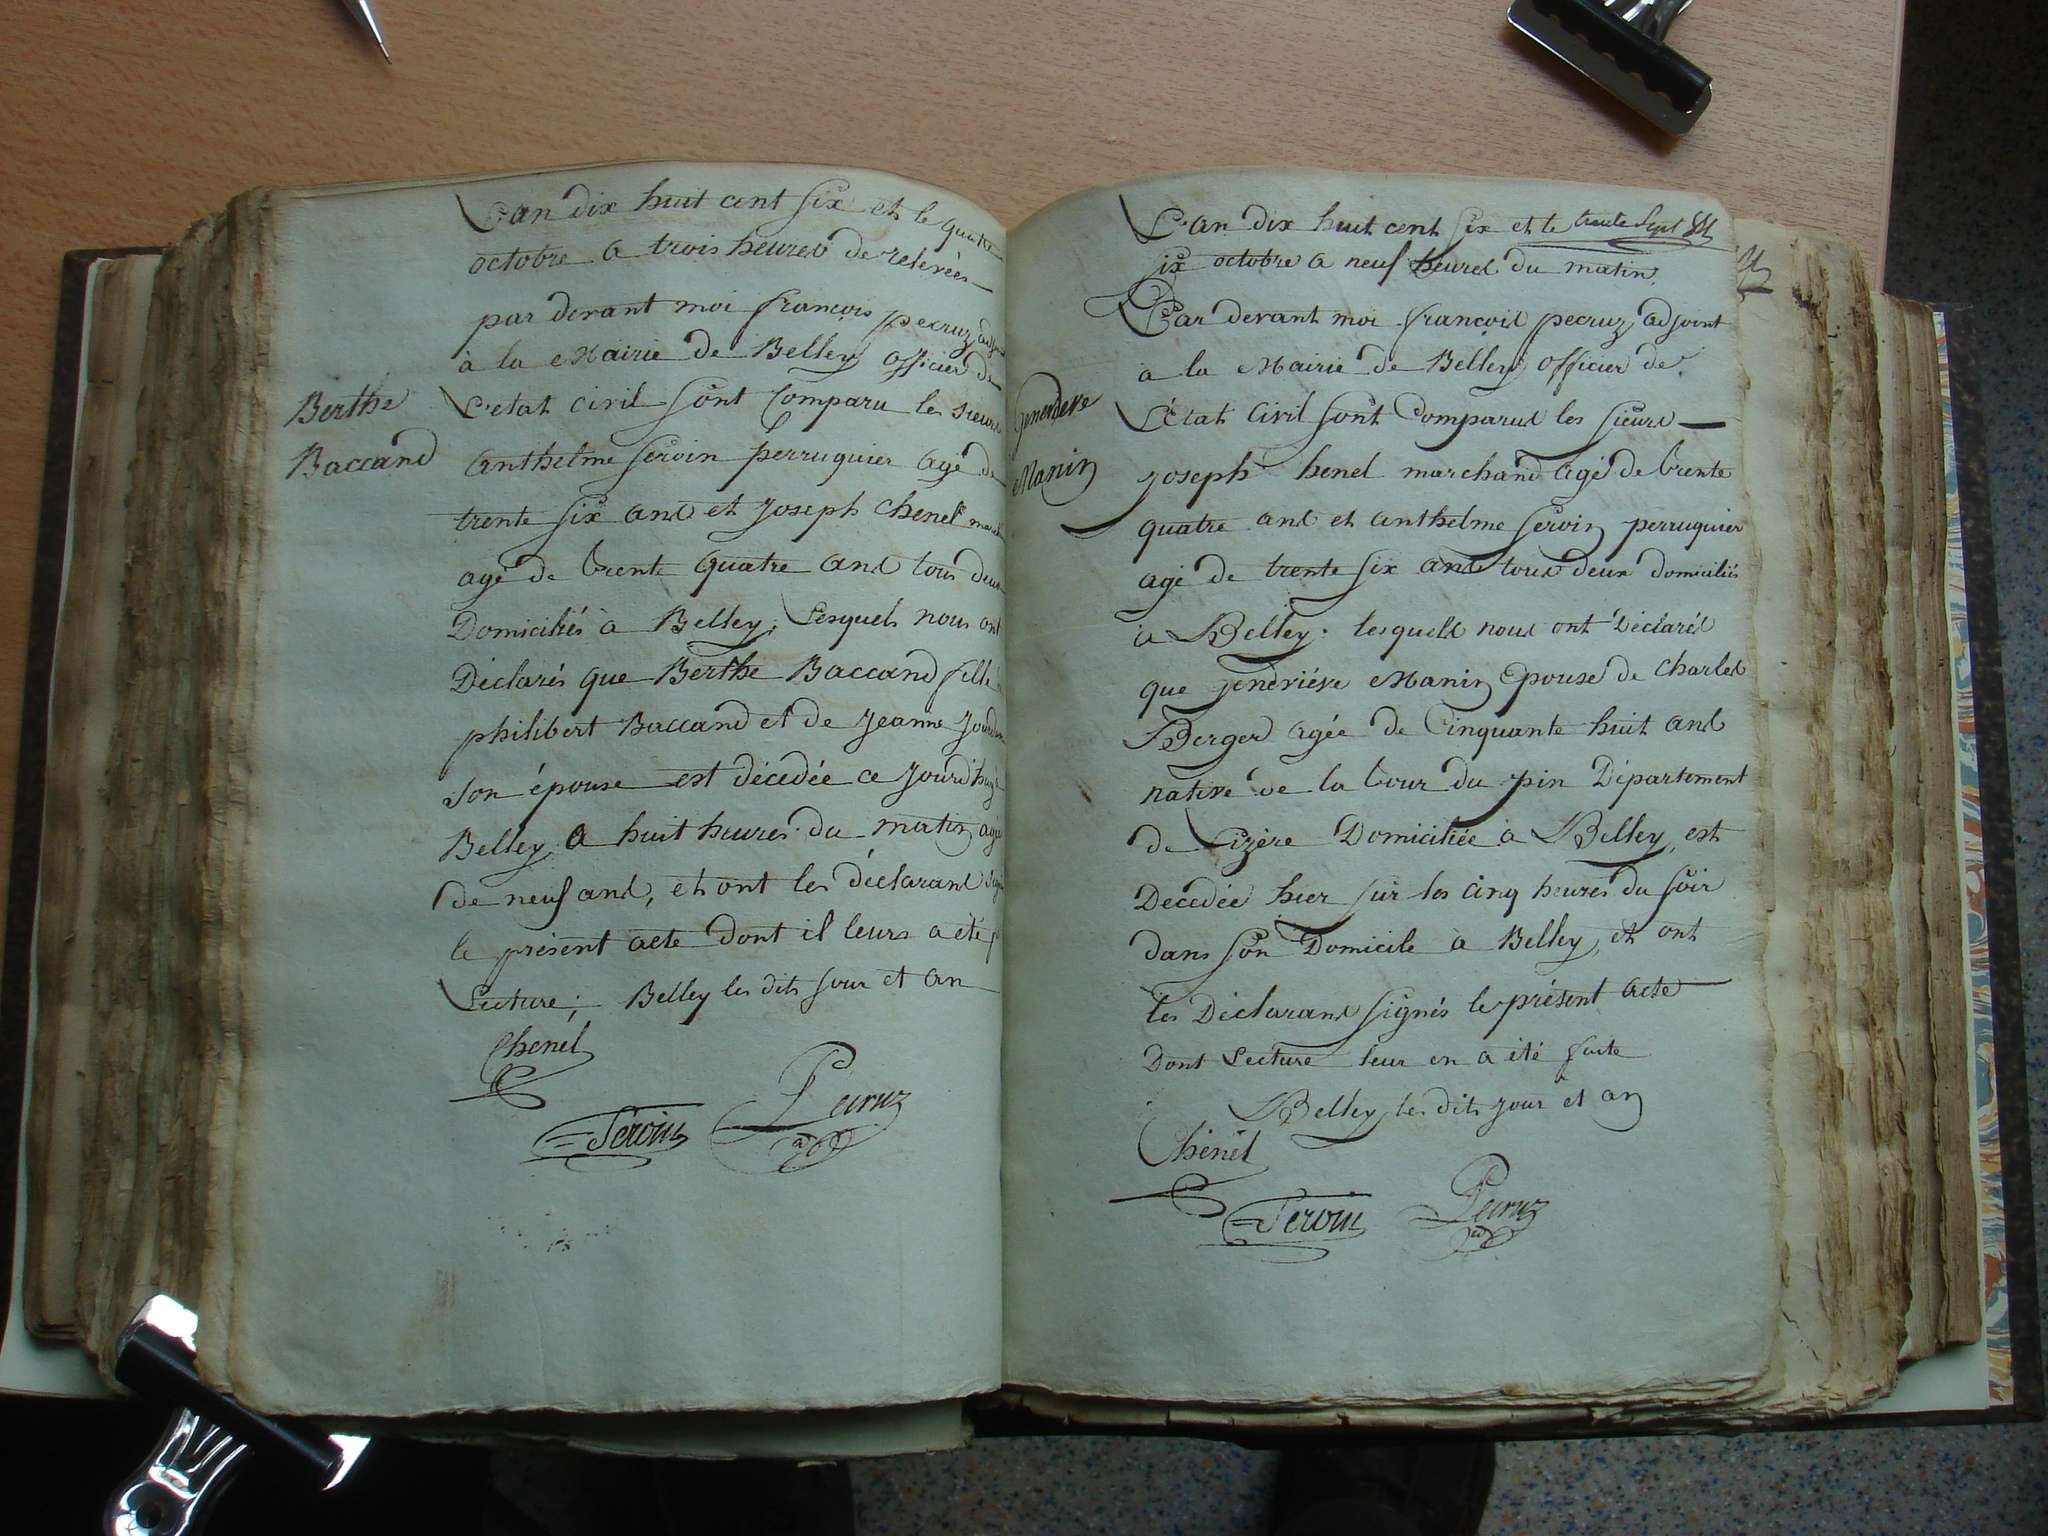 L'an dix huit cent six et le quatre
octobre a trois heures de relevées
par devant moi françois pecruz adjoint
à la Mairie de Belley officier de
L'etat civil sont Comparu les sieurs
Berthe
Baccand
anthelme servin perruquier agé de
trente six ans et joseph Chenel
agé de trente quatre ans tous deux
Domiciliés à Belley; Lesquels nous ont
Déclarés que Berthe Baccand fille
philibert Baccand et de jeanne
son épouse est décedée ce jourd'huy
Belley a huit heures du matin agée
de neuf ans, et ont les déclarans
le présent acte dont il leurs a été
Lecture; Belley les dits jour et an
Chenel
Servin
Pecruz
L'an dix huit cent six et le trente Sept
six octobre a neuf heures du matin.
Par devant moi françois pecruz adjoint
à la Mairie de Belley officier de
L'état Civil sont Comparus les sieurs
Genevieve
Manin
joseph henel marchand agé de trente
quatre ans et anthelme servin perruquier
agé de trente six ans tous deux domiciliés
à Belley: lesquels nous ont déclarés
que genevième Manin Epouse de Charles
Berger agée de Cinquante huit ans
native de la tour du pin Département
de Lizère Domiciliée à Belley, est
Decedée hier sur les cinq heures du soir
dans son Domicile à Belley, et ont
les Déclarans signés le présent acte
Dont Lecture leur en a été faite
Belley les dits jour et an
Chenel
Servin
Pecruz